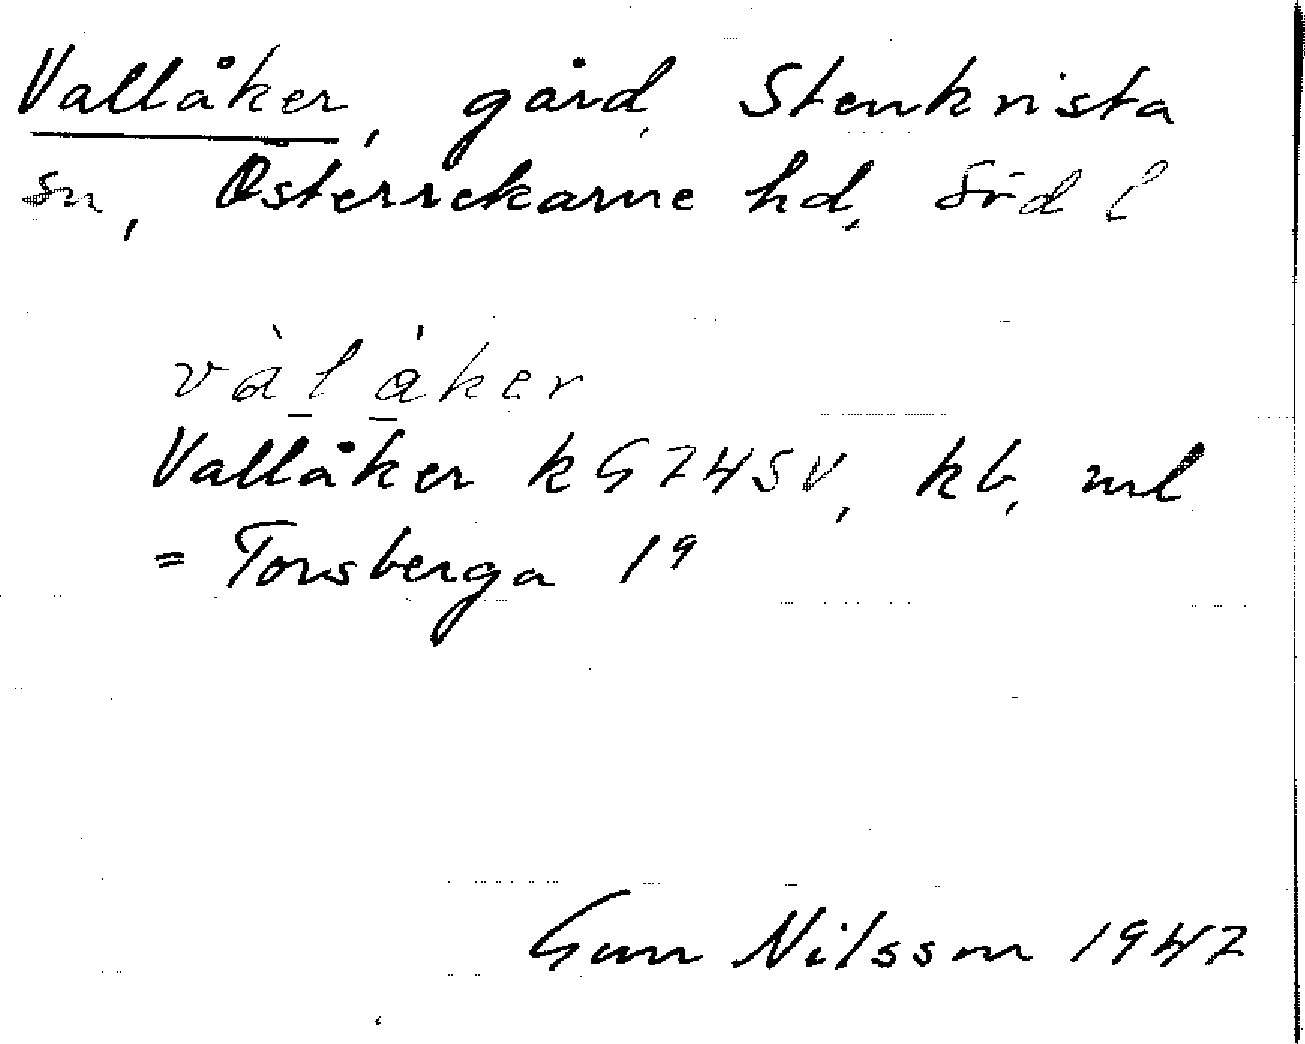 Vallåker, gård, Stenkvista
sn, Österrekarne hd, Söd l
vàlåker
Vallåker k G74SV, kb, ml
= Torsberga 1⁹
Gun Nilsson 1947